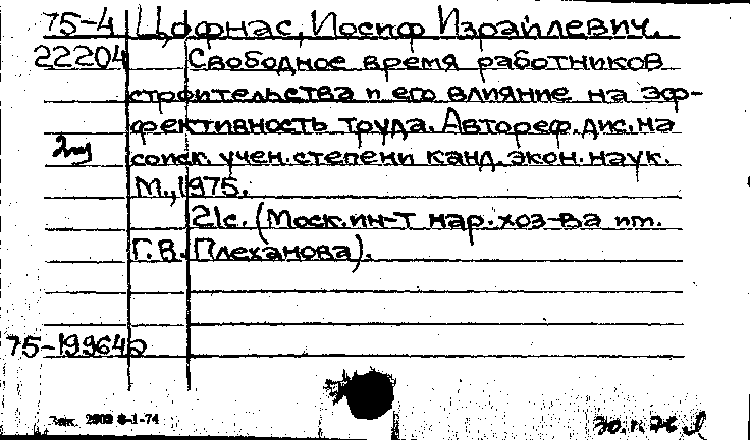 75-4 Цофнас, Иосиф Израйлевич.
22204 Свободное время работников
строительства и его влияние на эф-
фективность труда. Автореф. дис. на
соиск. учен. степени канд. экон. наук.
М., 1975.
21с. (Моск. ин-т нар. хоз-ва им.
Г.В. Плеханова).
75-19964
Зак. 2903 8-1-74